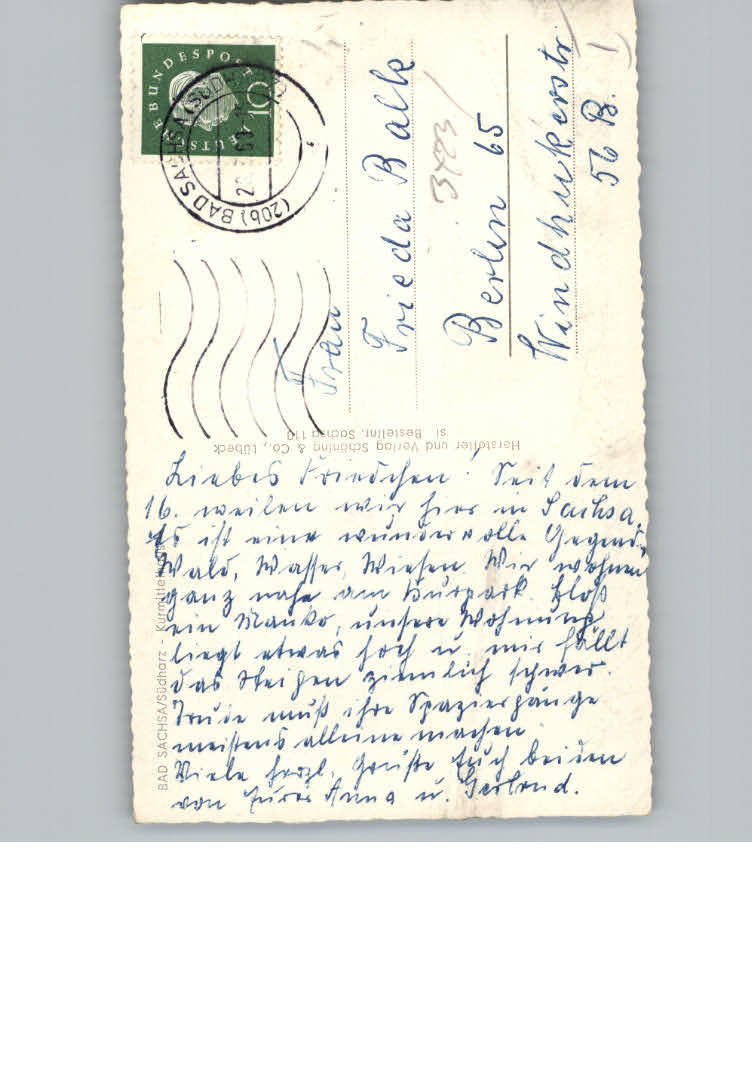 Liebes Friedchen! Seit dem
16. weilen wir hier in Sachsa.
Es ist eine wundervolle Gegend,
Wald, Wasser, Wiesen. Wir wohnen
ganz nahe am Kurpark. Bloß
ein Manko, unsere Wohnung
liegt etwas hoch u. mir fällt
das Steigen ziemlich schwer.
Trude muß ihre Spaziergänge
meistens alleine machen.
Viele herzl. Grüße Euch beiden
von Eurer Anna u.
BAD SACHSA/Südharz - Kurmittelhaus
Hersteller und Verlag Schöning & Co., Lübeck
si Bestellnr. Sachsa 110
DEUTSCHE BUNDESPOST
10
(20b) BAD SACHSA (SÜDHARZ)
Frau
Frieda Balk
3423
Berlin 65
Windhukerstr.
56 B.